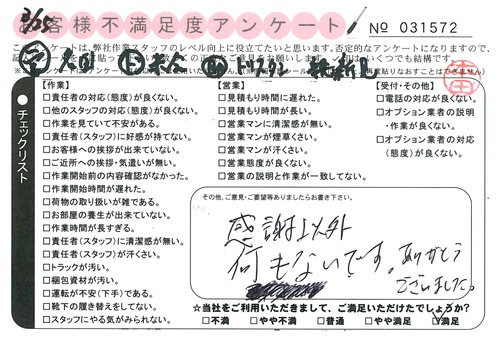 3/25
お客様不満足度アンケート
No 031572
このアンケートは、弊社作業スタッフのレベル向上に役立てたいと思います。否定的なアンケートになりますので、
チェックリスト
【作業】
□責任者の対応（態度）が良くない。
□他のスタッフの対応（態度）が良くない。
□作業を見ていて不安がある。
□責任者（スタッフ）に好感が持てない。
□お客様への挨拶が出来ていない。
□ご近所への挨拶・気遣いが無い。
□作業開始前の内容確認がなかった。
□作業開始時間が遅れた。
□荷物の取り扱いが雑である。
□お部屋の養生が出来ていない。
□作業時間が長すぎる。
□責任者（スタッフ）に清潔感が無い。
□責任者（スタッフ）が汗くさい。
□トラックが汚い。
□梱包資材が汚い。
□運転が不安（下手）である。
□靴下の履き替えをしてない。
□スタッフにやる気がみられない。
【営業】
□見積もり時間に遅れた。
□見積もり時間が長い。
□営業マンに清潔感が無い。
□営業マンが煙草くさい。
□営業マンが汗くさい。
□営業態度が良くない。
□営業の説明と作業が一致してない。
【受付・その他】
□電話の対応が良くない。
□オプション業者の説明
・作業が良くない。
□オプション業者の対応
（態度）が良くない。
その他、ご意見・ご要望等ありましたらお書き下さい。
感謝以外
何もないです。ありがとう
ございました。
☆当社をご利用いただきまして、ご満足いただけたでしょうか?
□不満 □やや不満 □普通 □やや満足 □満足